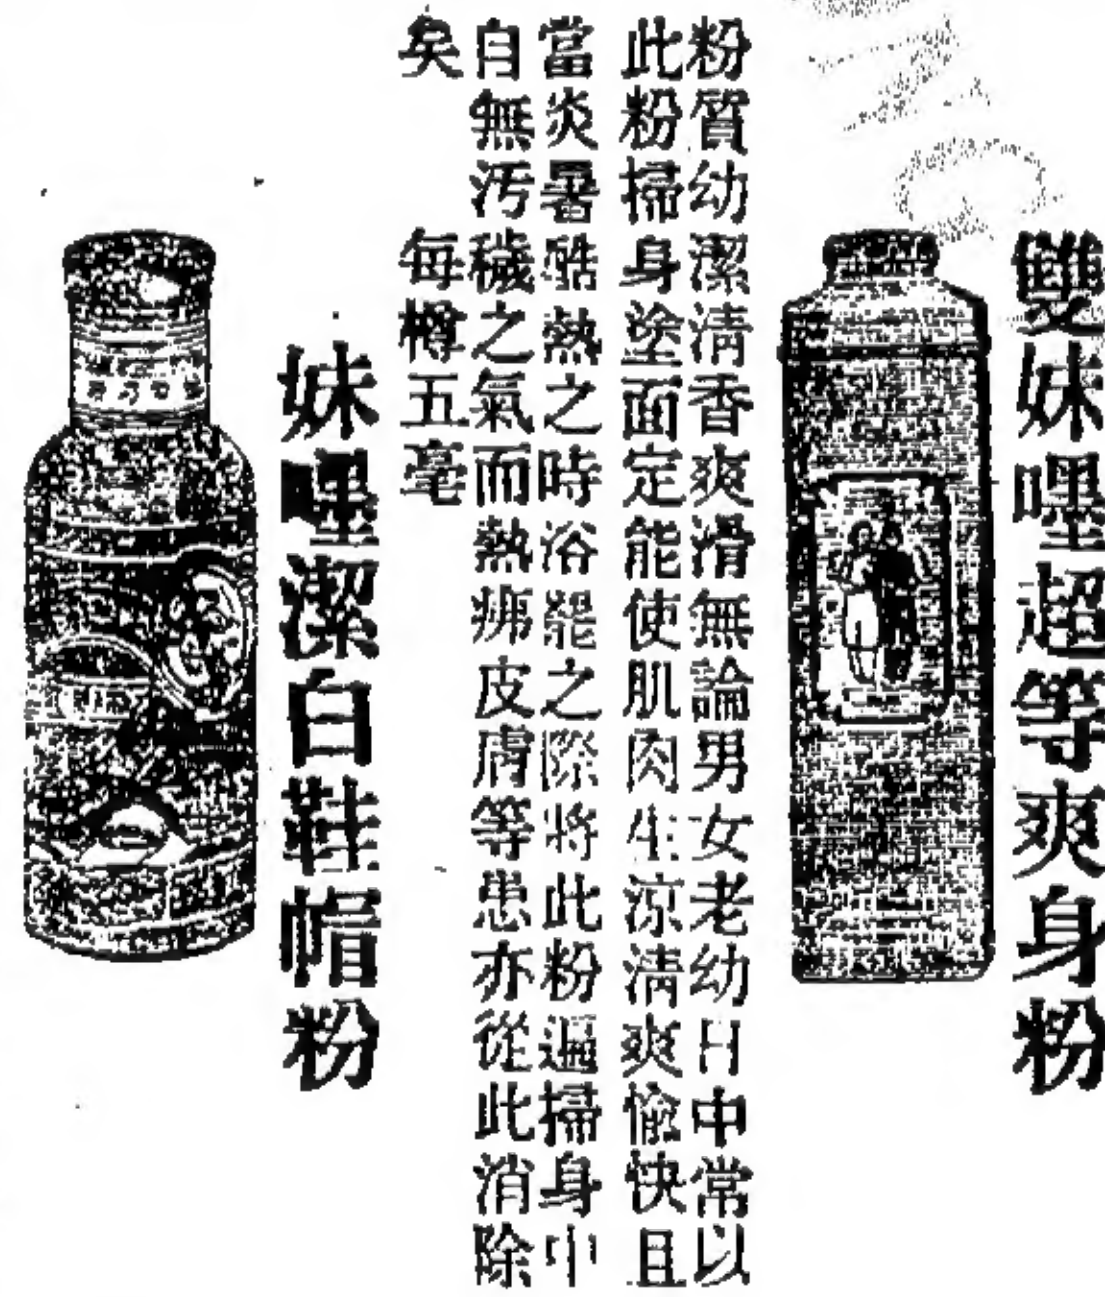 雙妹嚜超等爽身粉
粉質幼潔清香爽滑無論男女老幼日中常以
此粉掃身塗面定能使肌肉生涼清爽愉快且
當炎暑酷熱之時浴罷之際將此粉遍掃身中
自無污穢之氣而熱痱皮膚等患亦從此消除
矣
每樽五毫
妹嚜潔白鞋帽粉